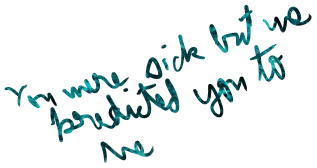 You were sick but we
predicted you to
me